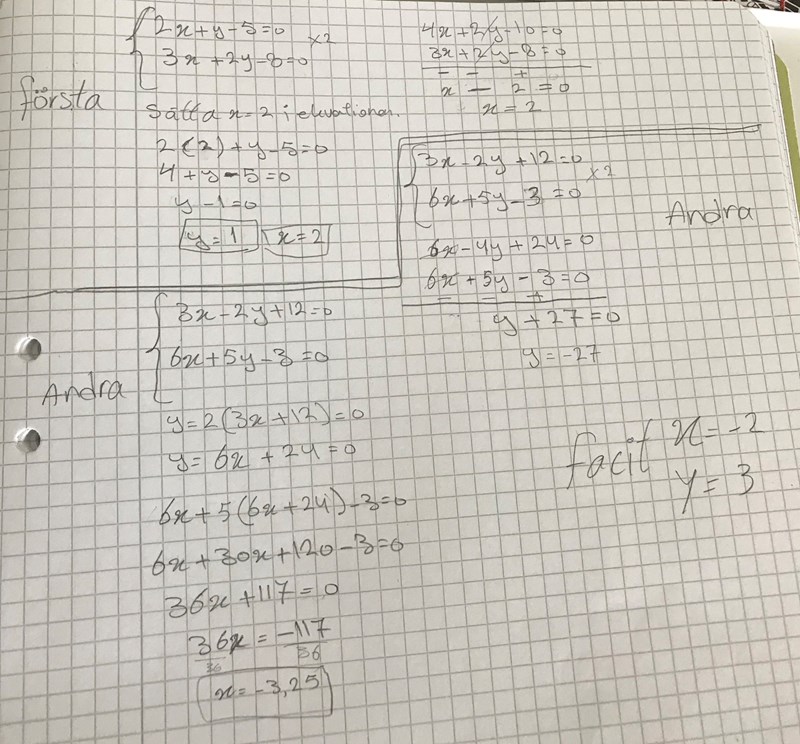 2x+y-5=0
×2
3x+2y-8=0
första
Sätta x=2 i ekvationen.
2(2)+y-5=0
4+y-5=0
y-1=0
y=1 x=2
4x+2y-10=0
3x+2y-8=0
- - +
x - 2=0
x=2
3x-2y+12=0
×2
6x+5y-3=0
Andra
6x-4y+24=0
6x+5y-3=0
- - +
y+27=0
y=-27
3x-2y+12=0
6x+5y-3=0
Andra
y=2(3x+12)=0
y=6x+24=0
6x+5(6x+24)-3=0
6x+30x+120-3=0
36x+117=0
36x=-117
36 36
x=-3,25
facit x=-2
y=3